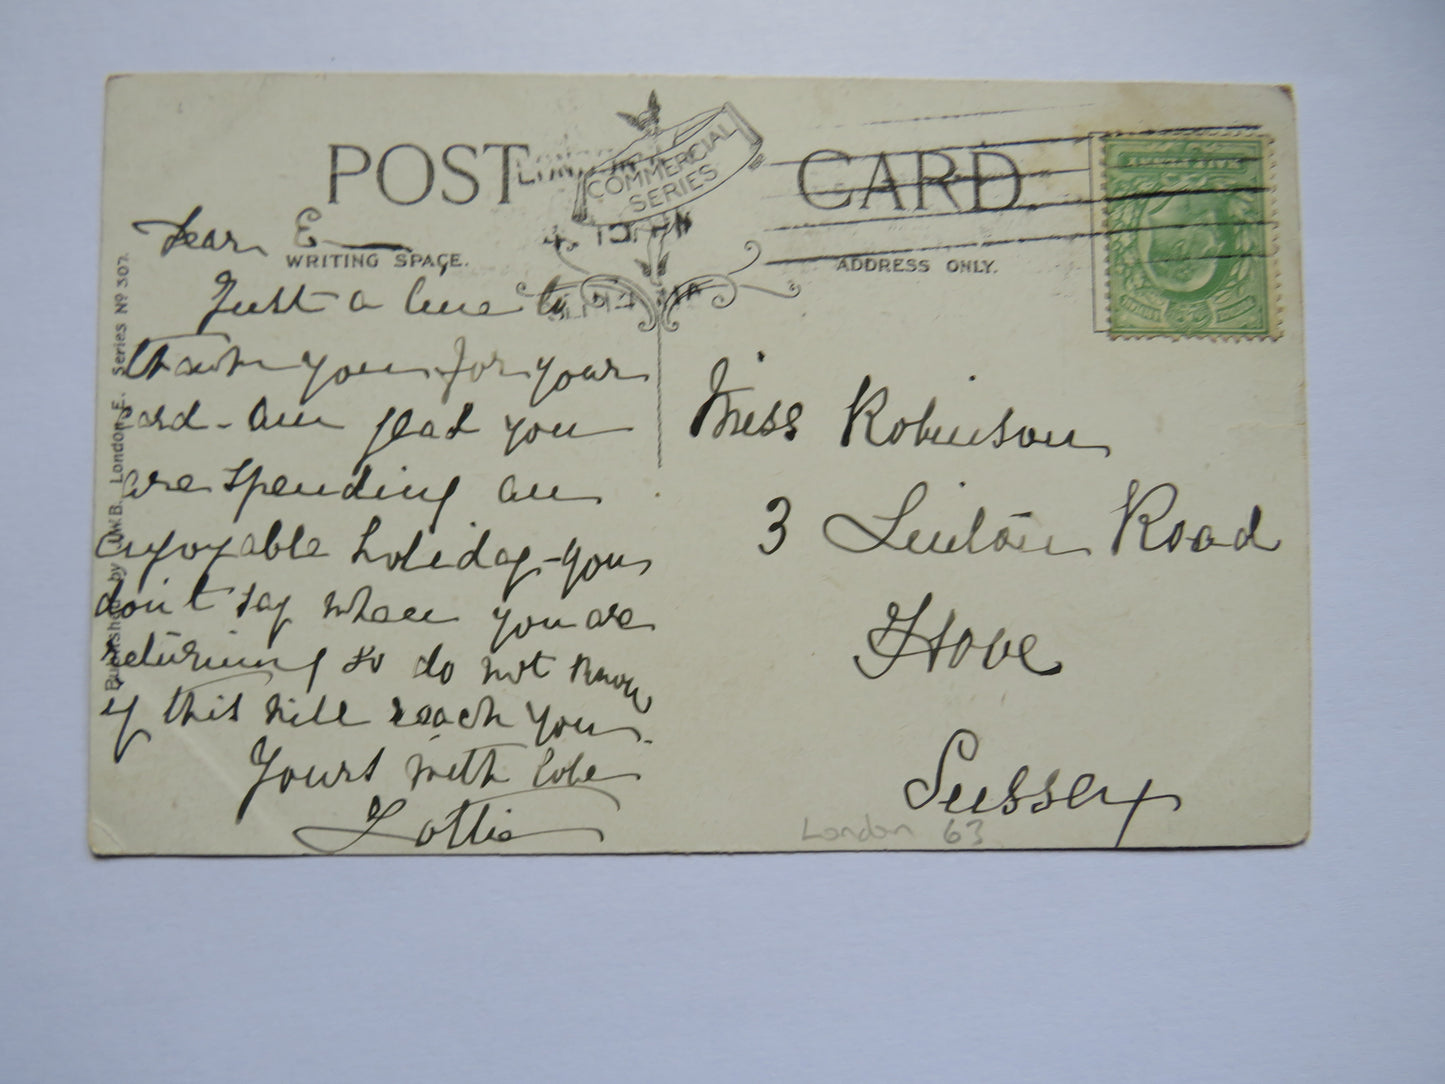 POST CARD
COMMERCIAL
SERIES
WRITING SPACE.
ADDRESS ONLY.
Published by J.W.B. London, E. Series Nº 307.
Dear E
Just a line to
thank you for your
card - am glad you
are spending an
enjoyable holiday - you
don't say when you are
returning so do not know
if this will reach you.
Yours with love
Lottie
Miss Robinson
3 Linton Road
Hove
Sussex
London 63